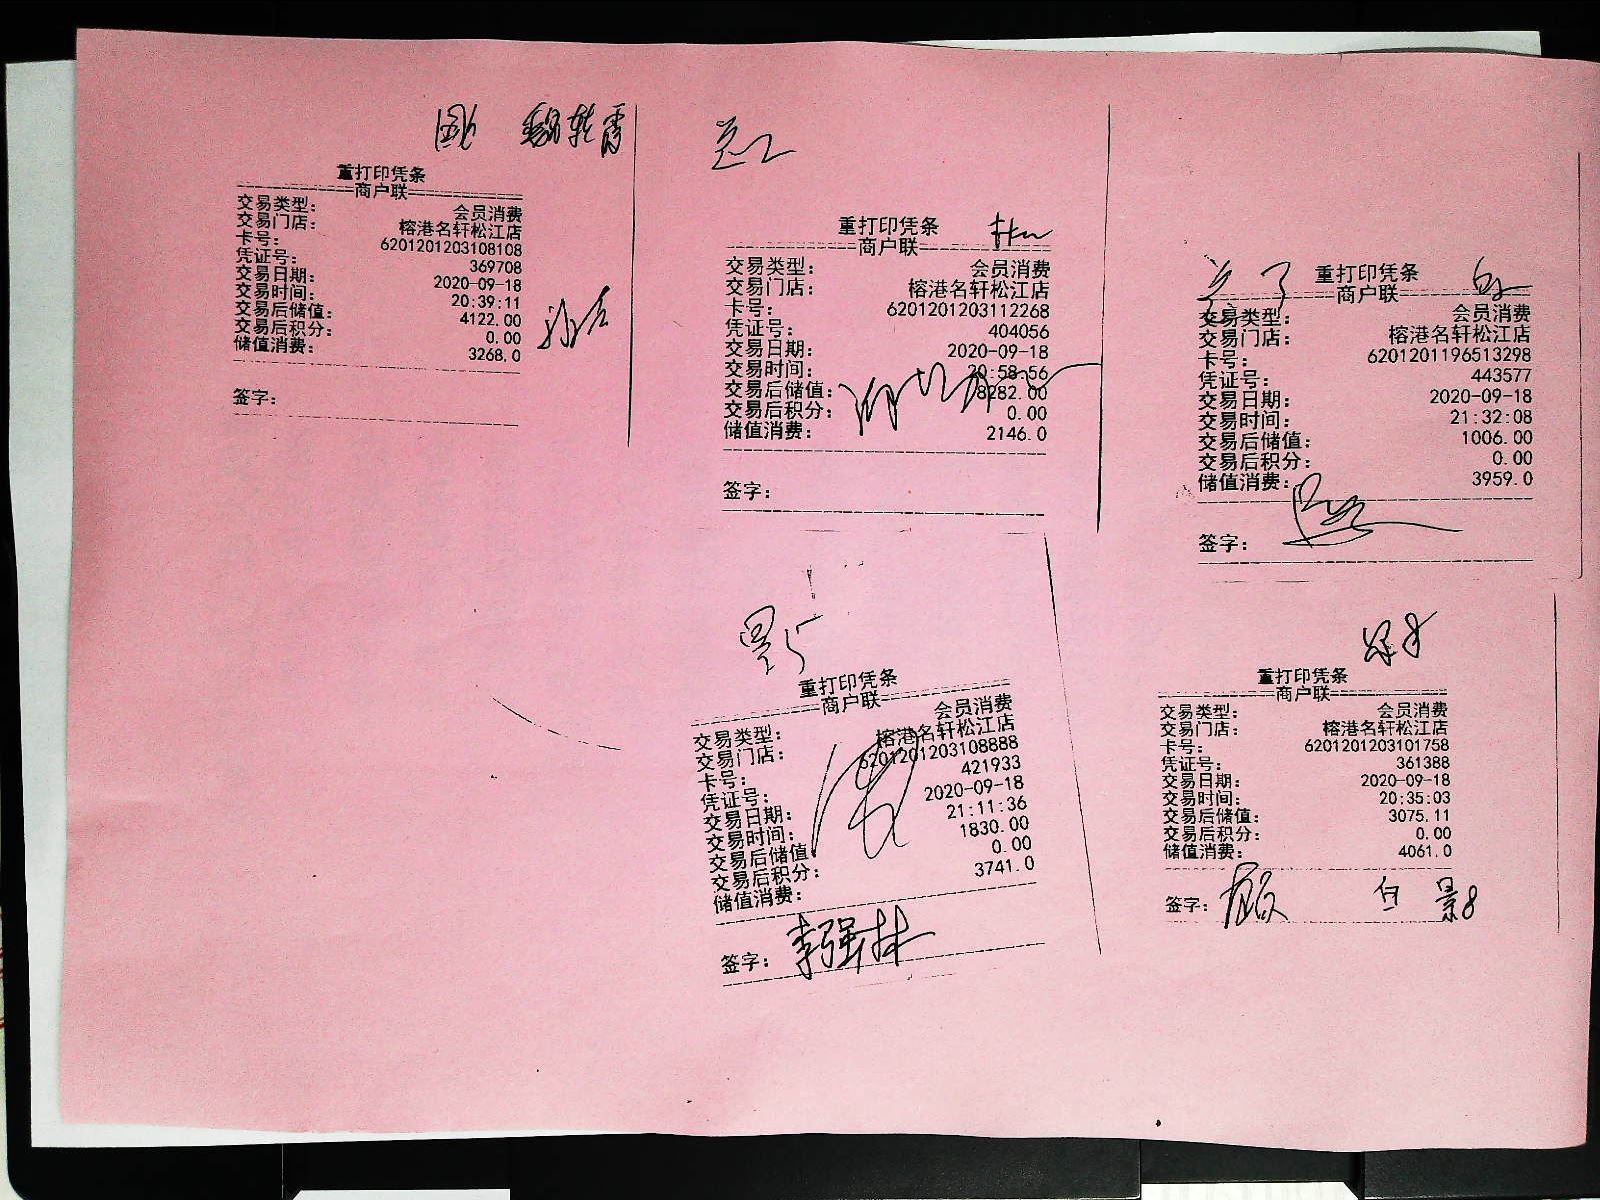 重打印凭条
商户联
交易类型: 会员消费
交易门店: 榕港名轩松江店
卡号: 6201201203108108
凭证号: 369708
交易日期: 2020-09-18
交易时间: 20:39:11
交易后储值: 4122.00
交易后积分: 0.00
储值消费: 3268.0
签字:
重打印凭条
商户联
交易类型: 会员消费
交易门店: 榕港名轩松江店
卡号: 6201201203112268
凭证号: 404056
交易日期: 2020-09-18
交易时间: 20:58:56
交易后储值: 8282.00
交易后积分: 0.00
储值消费: 2146.0
签字:
重打印凭条
商户联
交易类型: 会员消费
交易门店: 榕港名轩松江店
卡号: 6201201196513298
凭证号: 443577
交易日期: 2020-09-18
交易时间: 21:32:08
交易后储值: 1006.00
交易后积分: 0.00
储值消费: 3959.0
签字:
重打印凭条
商户联
交易类型: 会员消费
交易门店: 榕港名轩松江店
卡号: 6201201203108888
凭证号: 421933
交易日期: 2020-09-18
交易时间: 21:11:36
交易后储值: 1830.00
交易后积分: 0.00
储值消费: 3741.0
签字: 李强林
重打印凭条
商户联
交易类型: 会员消费
交易门店: 榕港名轩松江店
卡号: 6201201203101758
凭证号: 361388
交易日期: 2020-09-18
交易时间: 20:35:03
交易后储值: 3075.11
交易后积分: 0.00
储值消费: 4061.0
签字: 景8